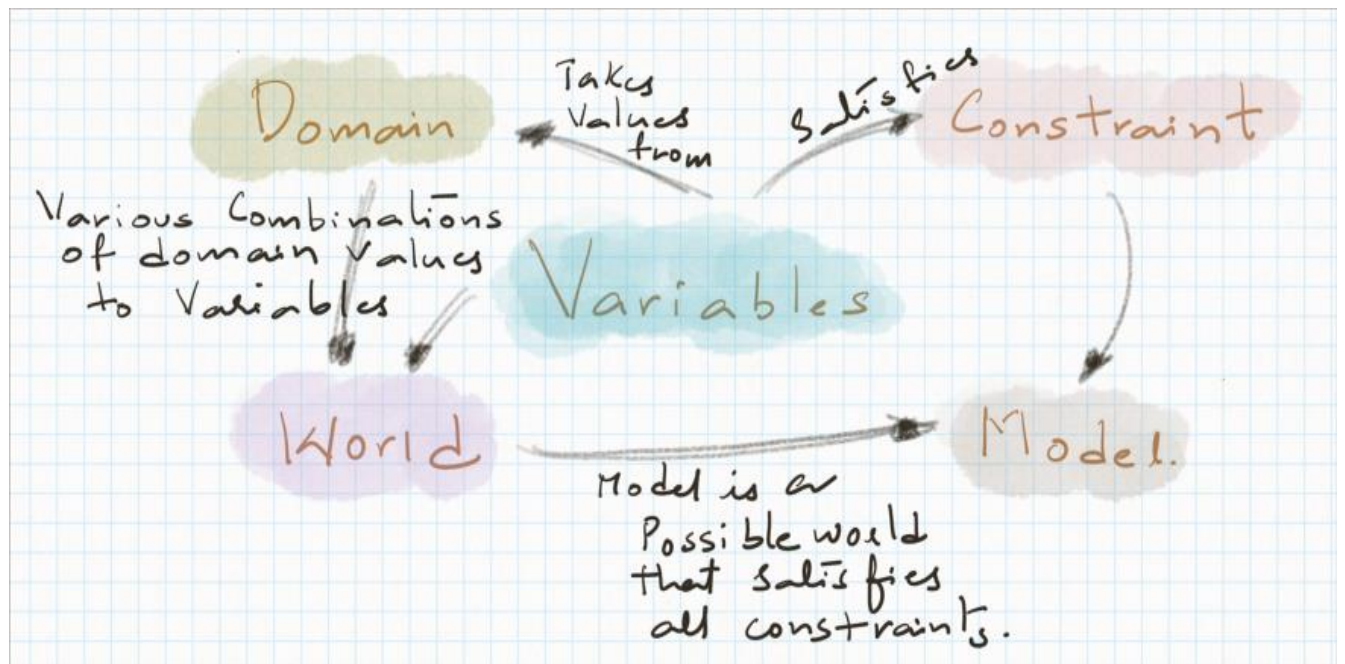 Domain
Takes
Values
from
Satisfies
Constraint
Various Combinations
of domain Values
to Variables
Variables
World
Model.
Model is a
Possible world
that Satisfies
all constraints.